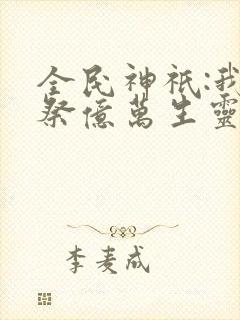 全民神祇:我
祭億萬生靈
李麦成